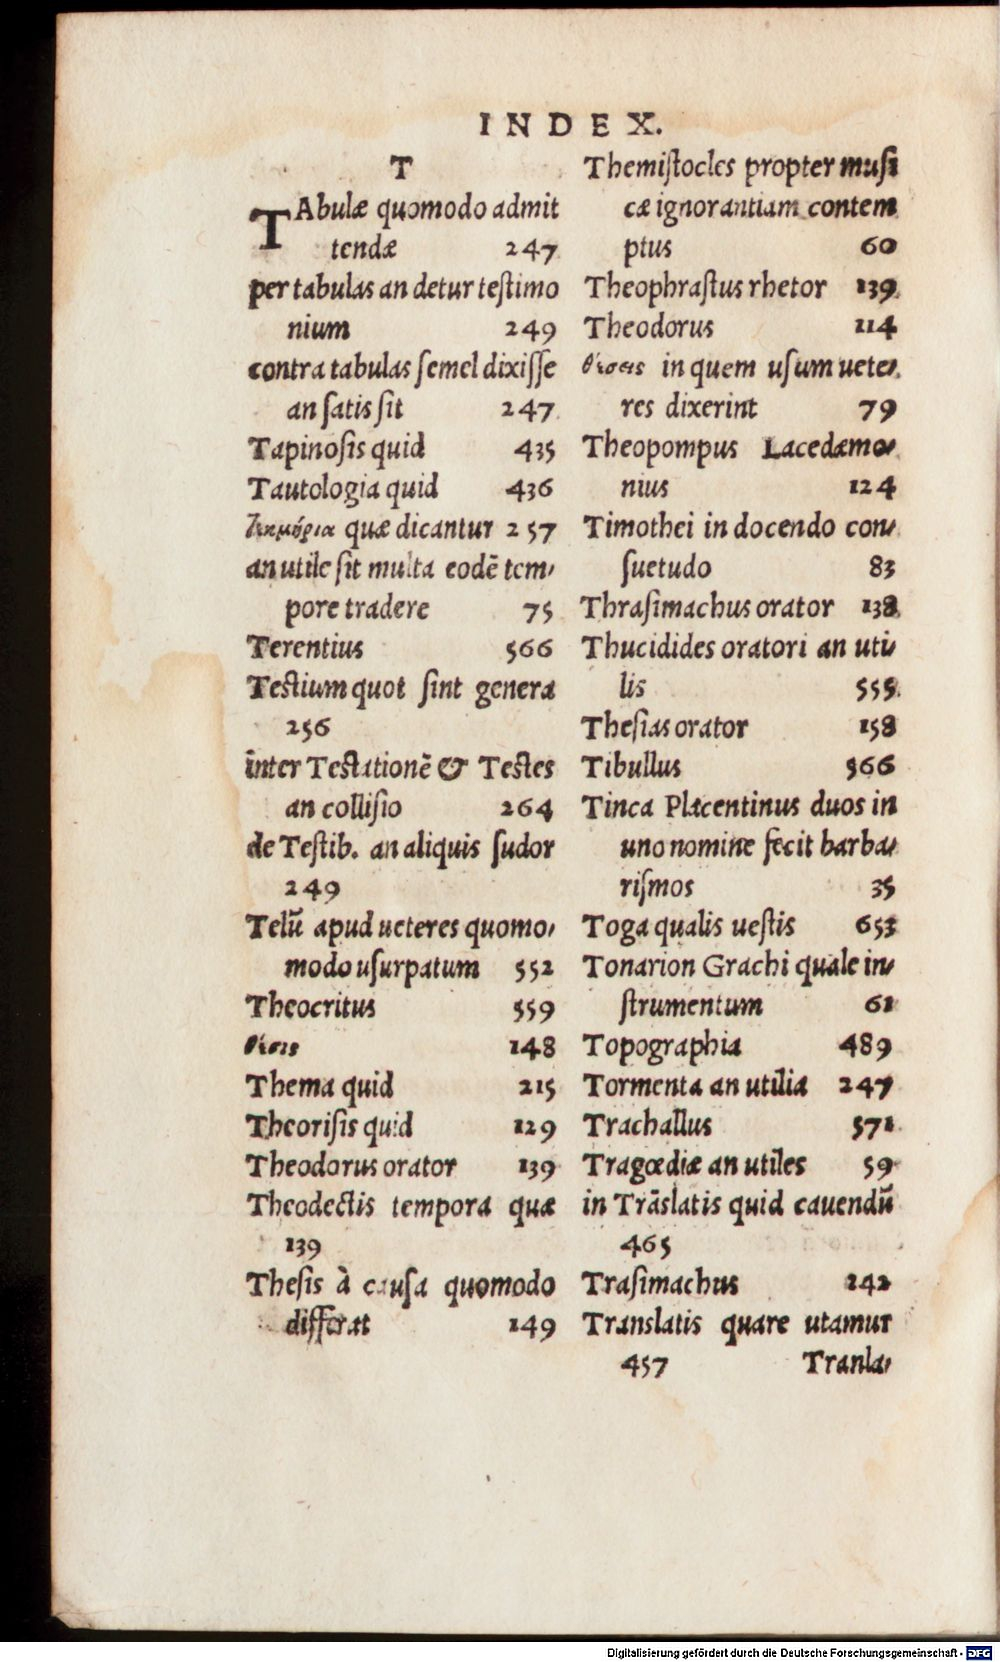 INDEX.
T
TAbulæ quomodo admit
tendæ 247
per tabulas an detur testimo
nium 249
contra tabulas semel dixisse
an satis sit 247
Tapinosis quid 435
Tautologia quid 436
quæ dicantur 257
an utile sit multa eodē tem-
pore tradere 75
Terentius 566
Testium quot sint genera
256
inter Testationē & Testes
an collisio 264
de Testib. an aliquis sudor
249
Telū apud ueteres quomo-
modo usurpatum 552
Theocritus 559
θέσις 148
Thema quid 215
Theorisis quid 129
Theodorus orator 139
Theodectis tempora quæ
139
Thesis à causa quomodo
differat 149
Themistocles propter musi
cæ ignorantiam contem
ptus 60
Theophrastus rhetor 139
Theodorus 114
θέσεις in quem usum uete-
res dixerint 79
Theopompus Lacedæmo-
nius 124
Timothei in docendo con-
suetudo 83
Thrasimachus orator 138
Thucidides oratori an uti-
lis 555
Thesias orator 158
Tibullus 566
Tinca Placentinus duos in
uno nomine fecit barba-
rismos 35
Toga qualis uestis 653
Tonarion Grachi quale in-
strumentum 61
Topographia 489
Tormenta an utilia 247
Trachallus 571
Tragœdiæ an utiles 59
in Trāslatis quid cauendū
465
Trasimachus 142
Translatis quare utamur
457 Tranla-
Digitalisierung gefördert durch die Deutsche Forschungsgemeinschaft - DFG